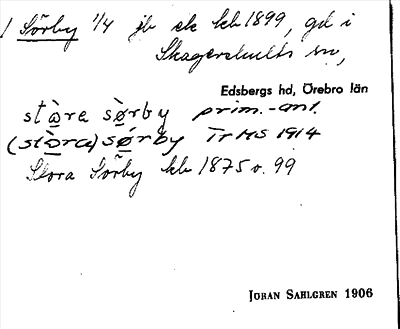 1 Sörby 1/4 jb ek kb 1899, gd i
Skagershults sn,
Edsbergs hd, Örebro län
stò̲ra sø̲̀rby prim.-ant.
(stò̲ra) sø̲̀rby TrHS 1914
Stora Sörby kb 1875 o. 99
JÖRAN SAHLGREN 1906